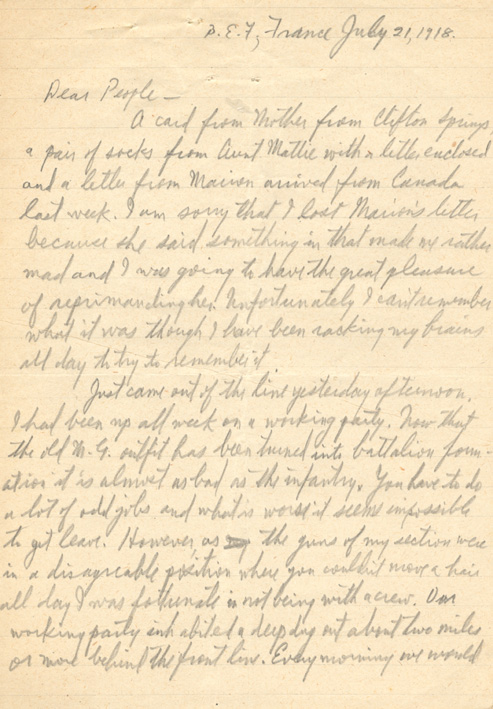 B.E.F., France July 21, 1918.
Dear People —
A card from Mother from Clifton Springs
a pair of socks from Aunt Mattie with a letter enclosed
and a letter from Marion arrived from Canada
last week. I am sorry that I lost Marion's letter
because she said something in that made me rather
mad and I was going to have the great pleasure
of reprimanding her. Unfortunately I can't remember
what it was though I have been racking my brains
all day to try to remember it.
Just came out of the line yesterday afternoon.
I had been up all week on a working party. Now that
the old M.G. outfit has been turned into battalion form-
ation it is almost as bad as the infantry. You have to do
a lot of odd jobs and what is worse it seems impossible
to get leave. However as the guns of my section were
in a disagreable position where you couldn't move a hair
all day I was fortunate in not being with a crew. Our
working party inhabited a deep dug out about two miles
or more behind the front line. Every morning we would